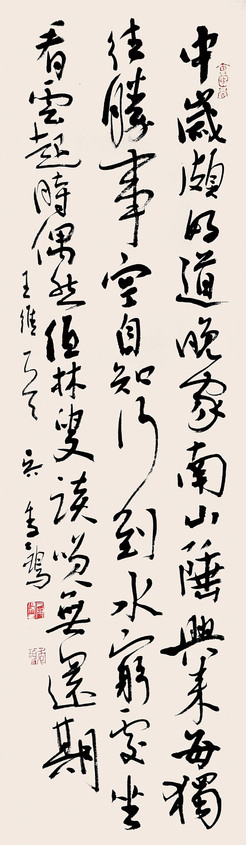 中歲頗好道晚家南山陲興來每獨
往勝事空自知行到水窮處坐
看雲起時偶然值林叟談笑無還期
王維